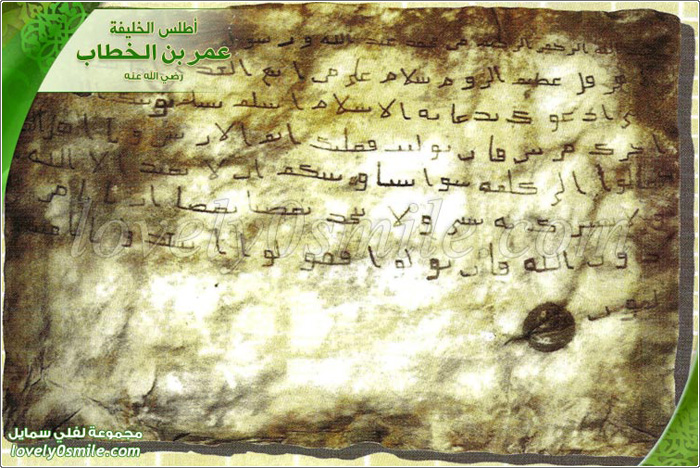 أطلس الخليفة
عمر بن الخطاب
رضي الله عنه
الله الرحمن الرحيم من محمد عبد الله ورسو
هرقل عظيم الروم سلام على من اتبع الهد
ادعوك بدعاية الاسلام اسلم تسلم
اجرك مرتين فان توليت فعليك اثم
تعالوا الى كلمة سوا بيننا وبينكم الا نعبد الا الله
ولا نشرك به ولا يتخذ بعضنا بعضا اربابا من
دون الله فان تولوا فقولوا اشهدوا بانا
لمون
lovely0smile.com
مجموعة لفلي سمايل
lovely0smile.com